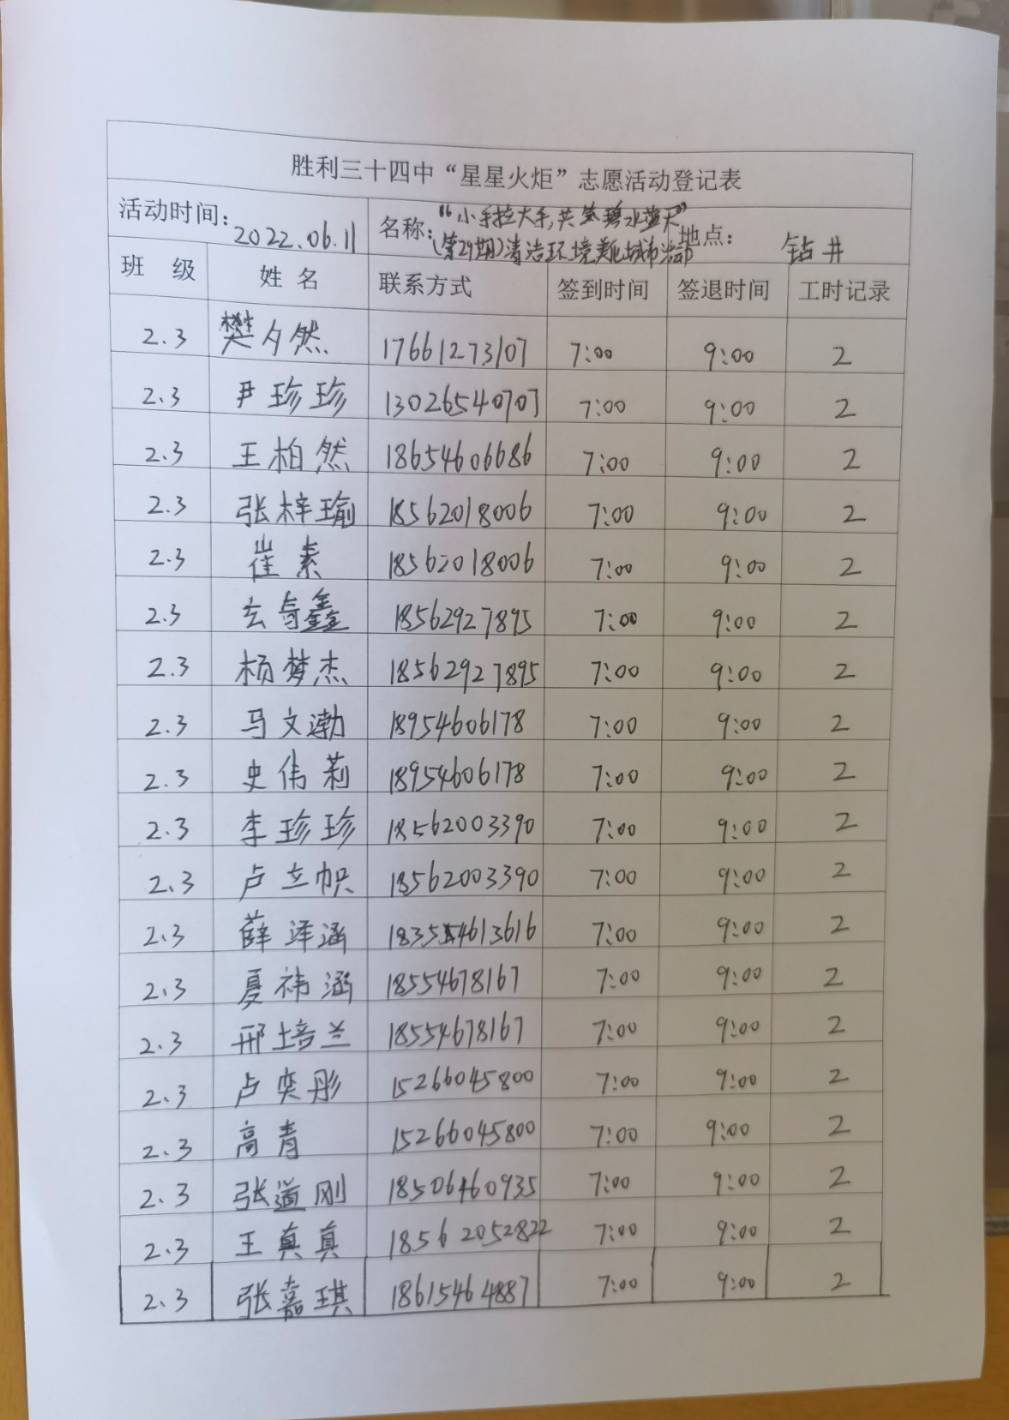 胜利三十四中“星星火炬”志愿活动登记表
活动时间: 2022.06.11 名称: “小手拉大手,共筑碧水蓝天” (第29期)清洁环境美化城市活动 地点: 钻井
班 级 姓 名 联系方式 签到时间 签退时间 工时记录
2.3 樊夕然 17661273107 7:00 9:00 2
2.3 尹珍珍 13026540707 7:00 9:00 2
2.3 王柏然 18654606686 7:00 9:00 2
2.3 张梓瑜 18562018006 7:00 9:00 2
2.3 崔素 18562018006 7:00 9:00 2
2.3 玄鑫 18562927895 7:00 9:00 2
2.3 杨梦杰 18562927895 7:00 9:00 2
2.3 马文渤 18954606178 7:00 9:00 2
2.3 史伟莉 18954606178 7:00 9:00 2
2.3 李珍珍 18562003390 7:00 9:00 2
2.3 卢立帜 18562003390 7:00 9:00 2
2.3 薛泽涵 7:00 9:00 2
2.3 夏祎涵 18554678167 7:00 9:00 2
2.3 邢培兰 18554678167 7:00 9:00 2
2.3 卢奕彤 15266045800 7:00 9:00 2
2.3 高青 15266045800 7:00 9:00 2
2.3 张道刚 18506460935 7:00 9:00 2
2.3 王真真 18562052822 7:00 9:00 2
2.3 张嘉琪 18615464887 7:00 9:00 2